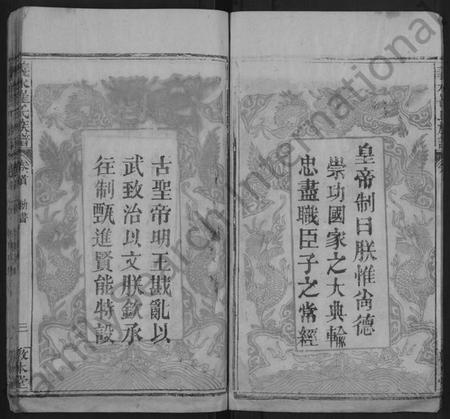 皇帝制曰朕惟尙德
崇功國家之大典輸
忠盡職臣子之常經
古聖帝明王戡亂以
武致治以文朕欽承
往制甄進賢能特設
氏族譜
卷首
敕書
三
敦本堂
familysearch international